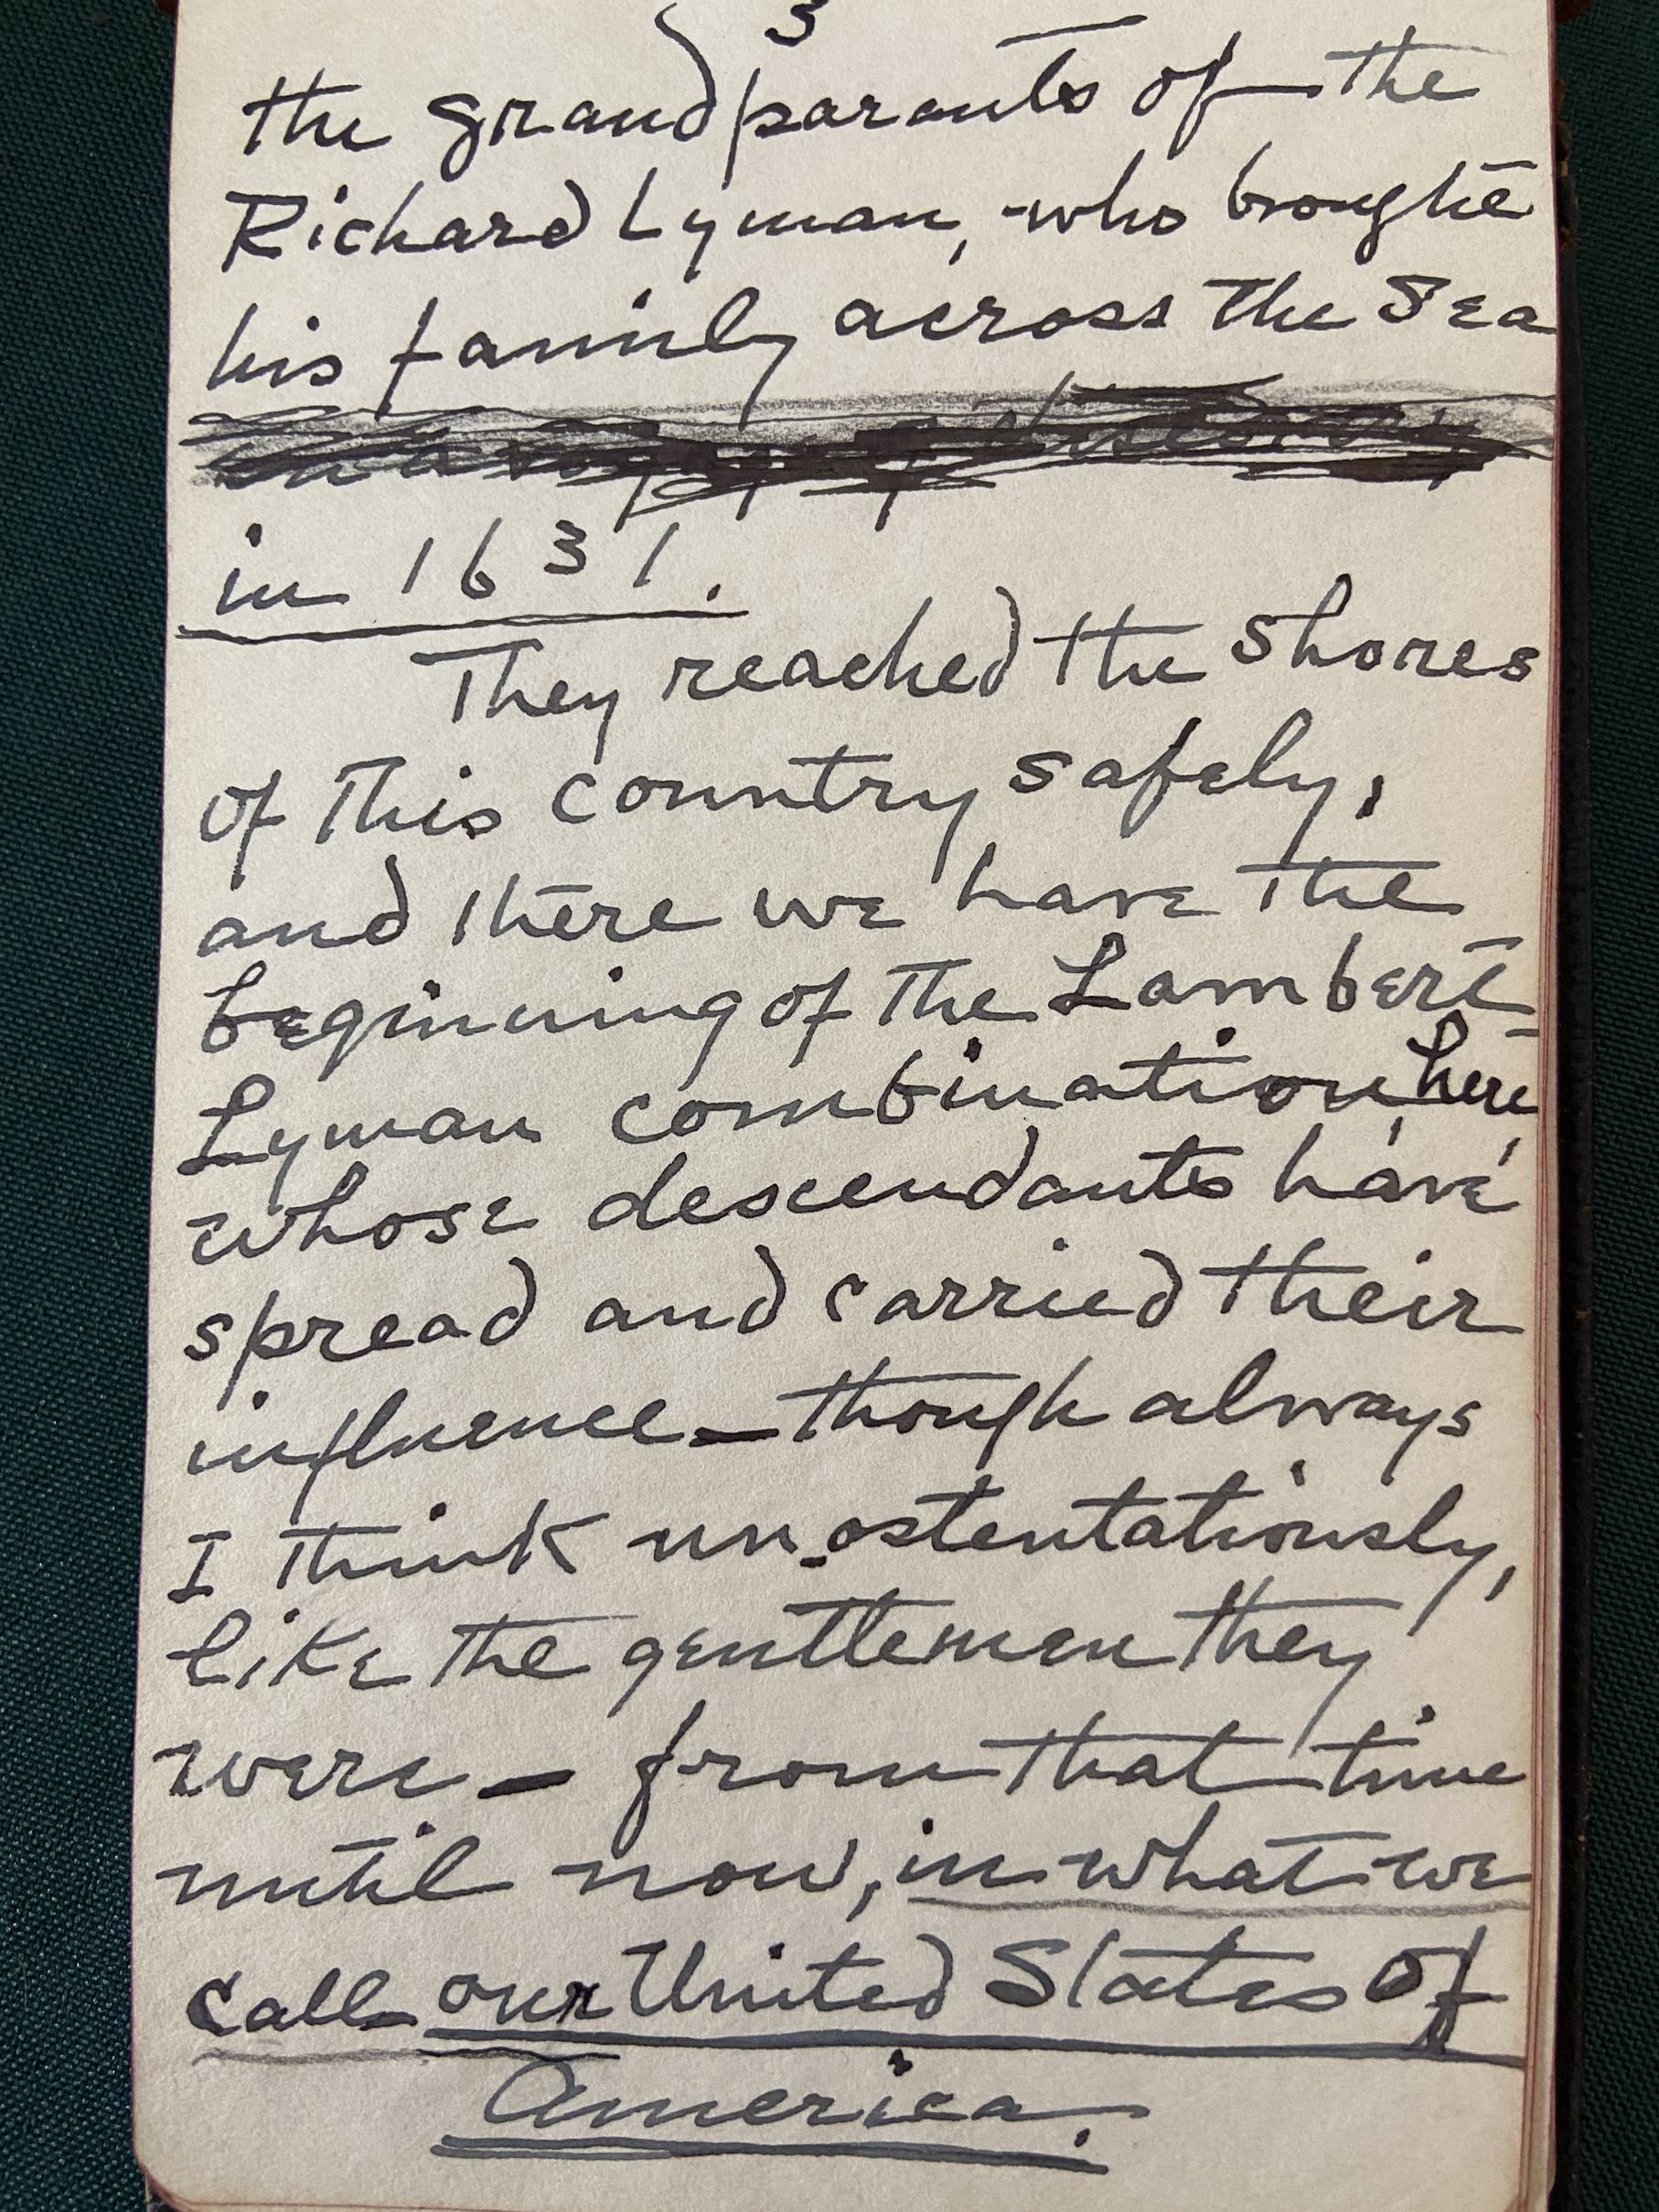 3
the grandparents of the
Richard Lyman, who brought
his family across the Sea
in 1631.
They reached the shores
of this country safely,
and there we have the
beginning of the Lambert-
Lyman combination, here,
whose descendants have
spread and carried their
influence — though always
I think un-ostentatiously,
like the gentlemen they
were — from that time
until now, in what we
call our United States Of
America.